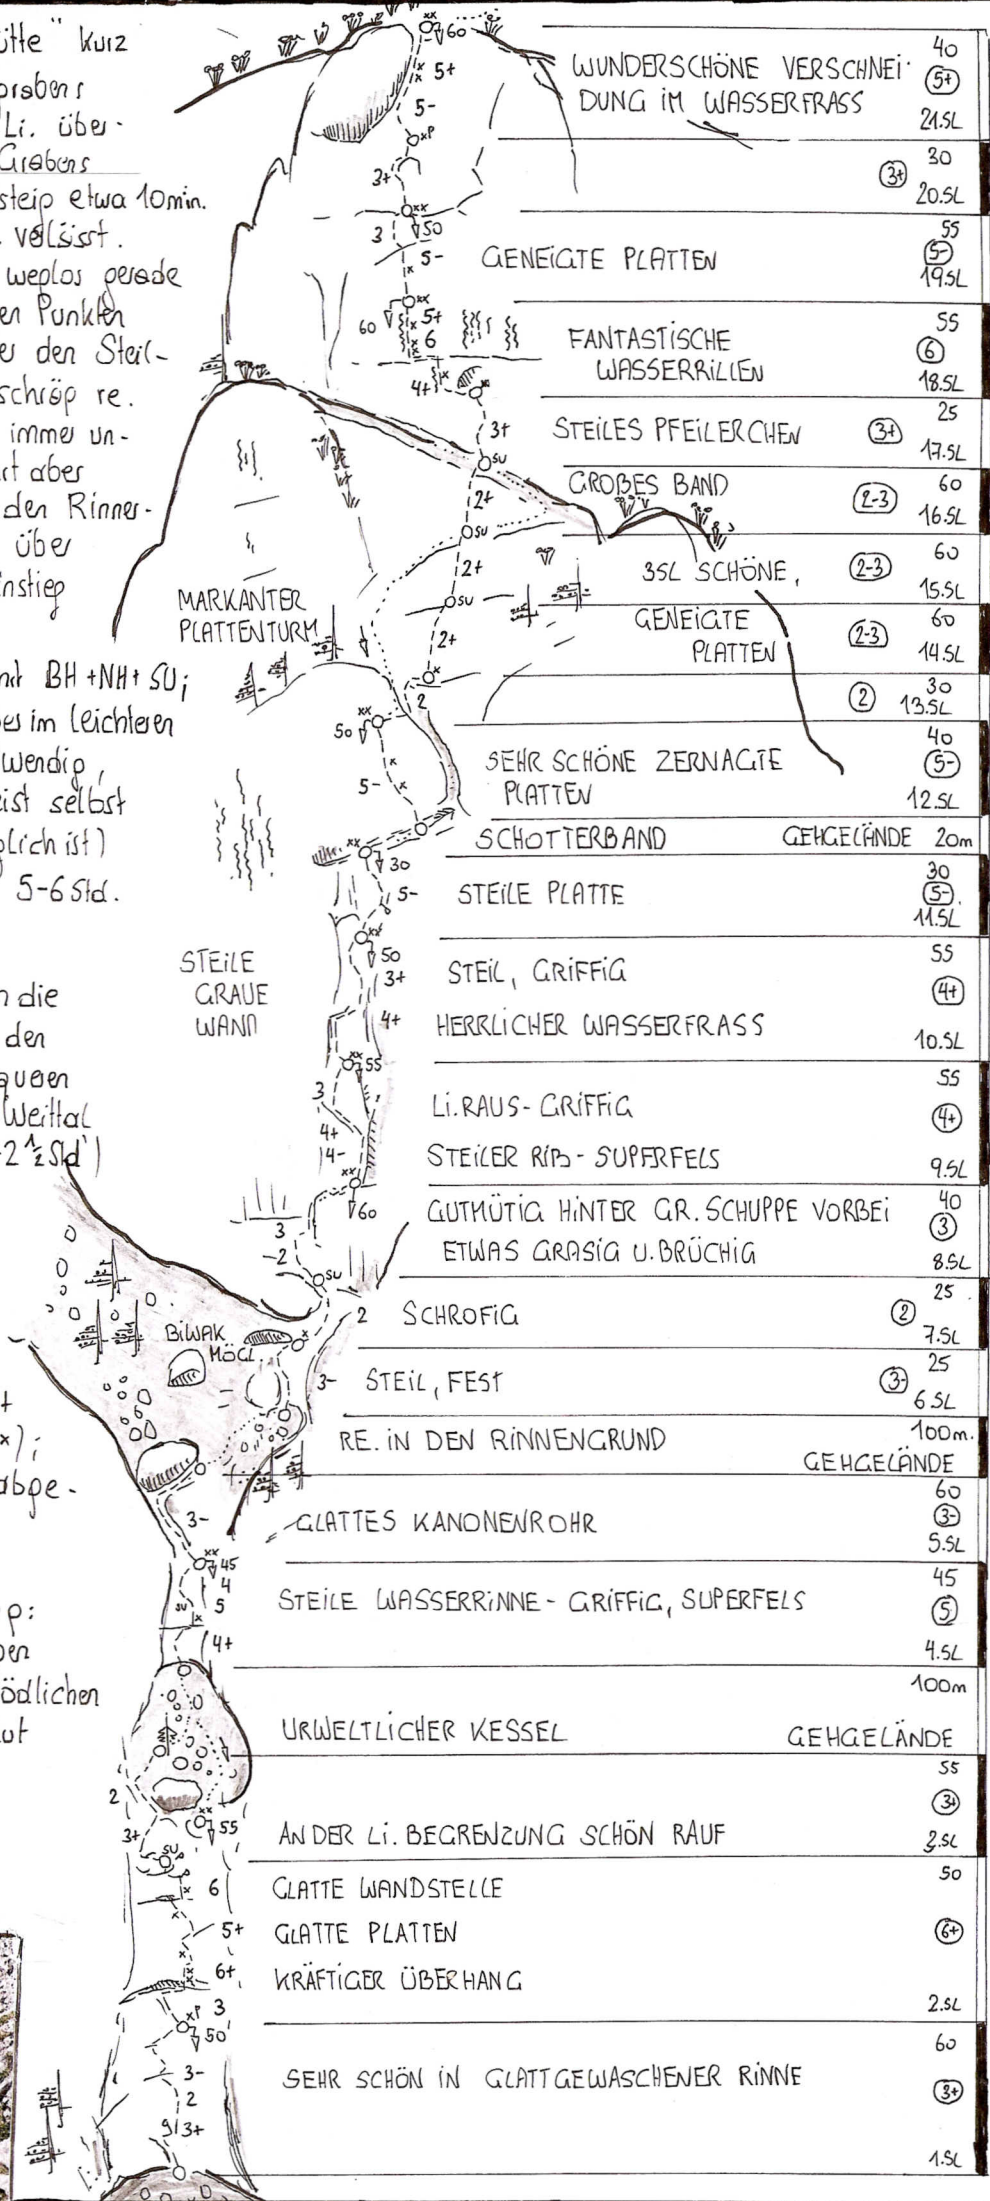 ütte" kurz
Li. über-
Grabens
steig etwa 10min.
verlässt.
weglos gerade
en Punkten
er den Steil-
schräg re.
immer un-
rt aber
den Rinner-
über
instieg
mit BH+NH+SU;
es im leichteren
wendig,
eist selbst
glich ist)
5-6 Std.
n die
den
queren
Weittal
-2 ½ Std.)
t
x);
abge-
p:
en
ödlichen
ut
60
5+
5-
xP
3+
xx
50
3
5-
xx
60
5+
6
4+
3+
SU
2+
SU
2+
SU
2+
MARKANTER
PLATTENTURM
2
xx
50
5-
xx
30
5-
xx
50
3+
4+
STEILE
GRAUE
WAND
xx
55
3
4+
4-
xx
60
3
2
SU
2
BIWAK
MÖGL.
3-
3-
xx
45
4
5
SU
4+
2
xx
55
3+
SU
6
5+
6+
3
xP
50
3-
2
3+
WUNDERSCHÖNE VERSCHNEI-
DUNG IM WASSERFRASS
40
5+
21.SL
30
3+
20.SL
GENEIGTE PLATTEN
55
5-
19.SL
FANTASTISCHE
WASSERRILLEN
55
6
18.SL
STEILES PFEILERCHEN
25
3+
17.SL
GROßES BAND
60
2-3
16.SL
3SL SCHÖNE,
60
2-3
15.SL
GENEIGTE
PLATTEN
60
2-3
14.SL
30
2
13.SL
SEHR SCHÖNE ZERNAGTE
PLATTEN
40
5-
12.SL
SCHOTTERBAND GEHGELÄNDE 20m
STEILE PLATTE
30
5-
11.SL
STEIL, GRIFFIG
HERRLICHER WASSERFRASS
55
4+
10.SL
LI. RAUS - GRIFFIG
STEILER RIß - SUPERFELS
55
4+
9.SL
GUTMÜTIG HINTER GR. SCHUPPE VORBEI
ETWAS GRASIG U. BRÜCHIG
40
3
8.SL
SCHROFIG
25
2
7.SL
STEIL, FEST
25
3-
6.SL
RE. IN DEN RINNENGRUND
100m.
GEHGELÄNDE
GLATTES KANONENROHR
60
3-
5.SL
STEILE WASSERRINNE - GRIFFIG, SUPERFELS
45
5
4.SL
URWELTLICHER KESSEL
100m
GEHGELÄNDE
AN DER LI. BEGRENZUNG SCHÖN RAUF
55
3+
3.SL
GLATTE WANDSTELLE
GLATTE PLATTEN
KRÄFTIGER ÜBERHANG
50
6+
2.SL
SEHR SCHÖN IN GLATTGEWASCHENER RINNE
60
3+
1.SL